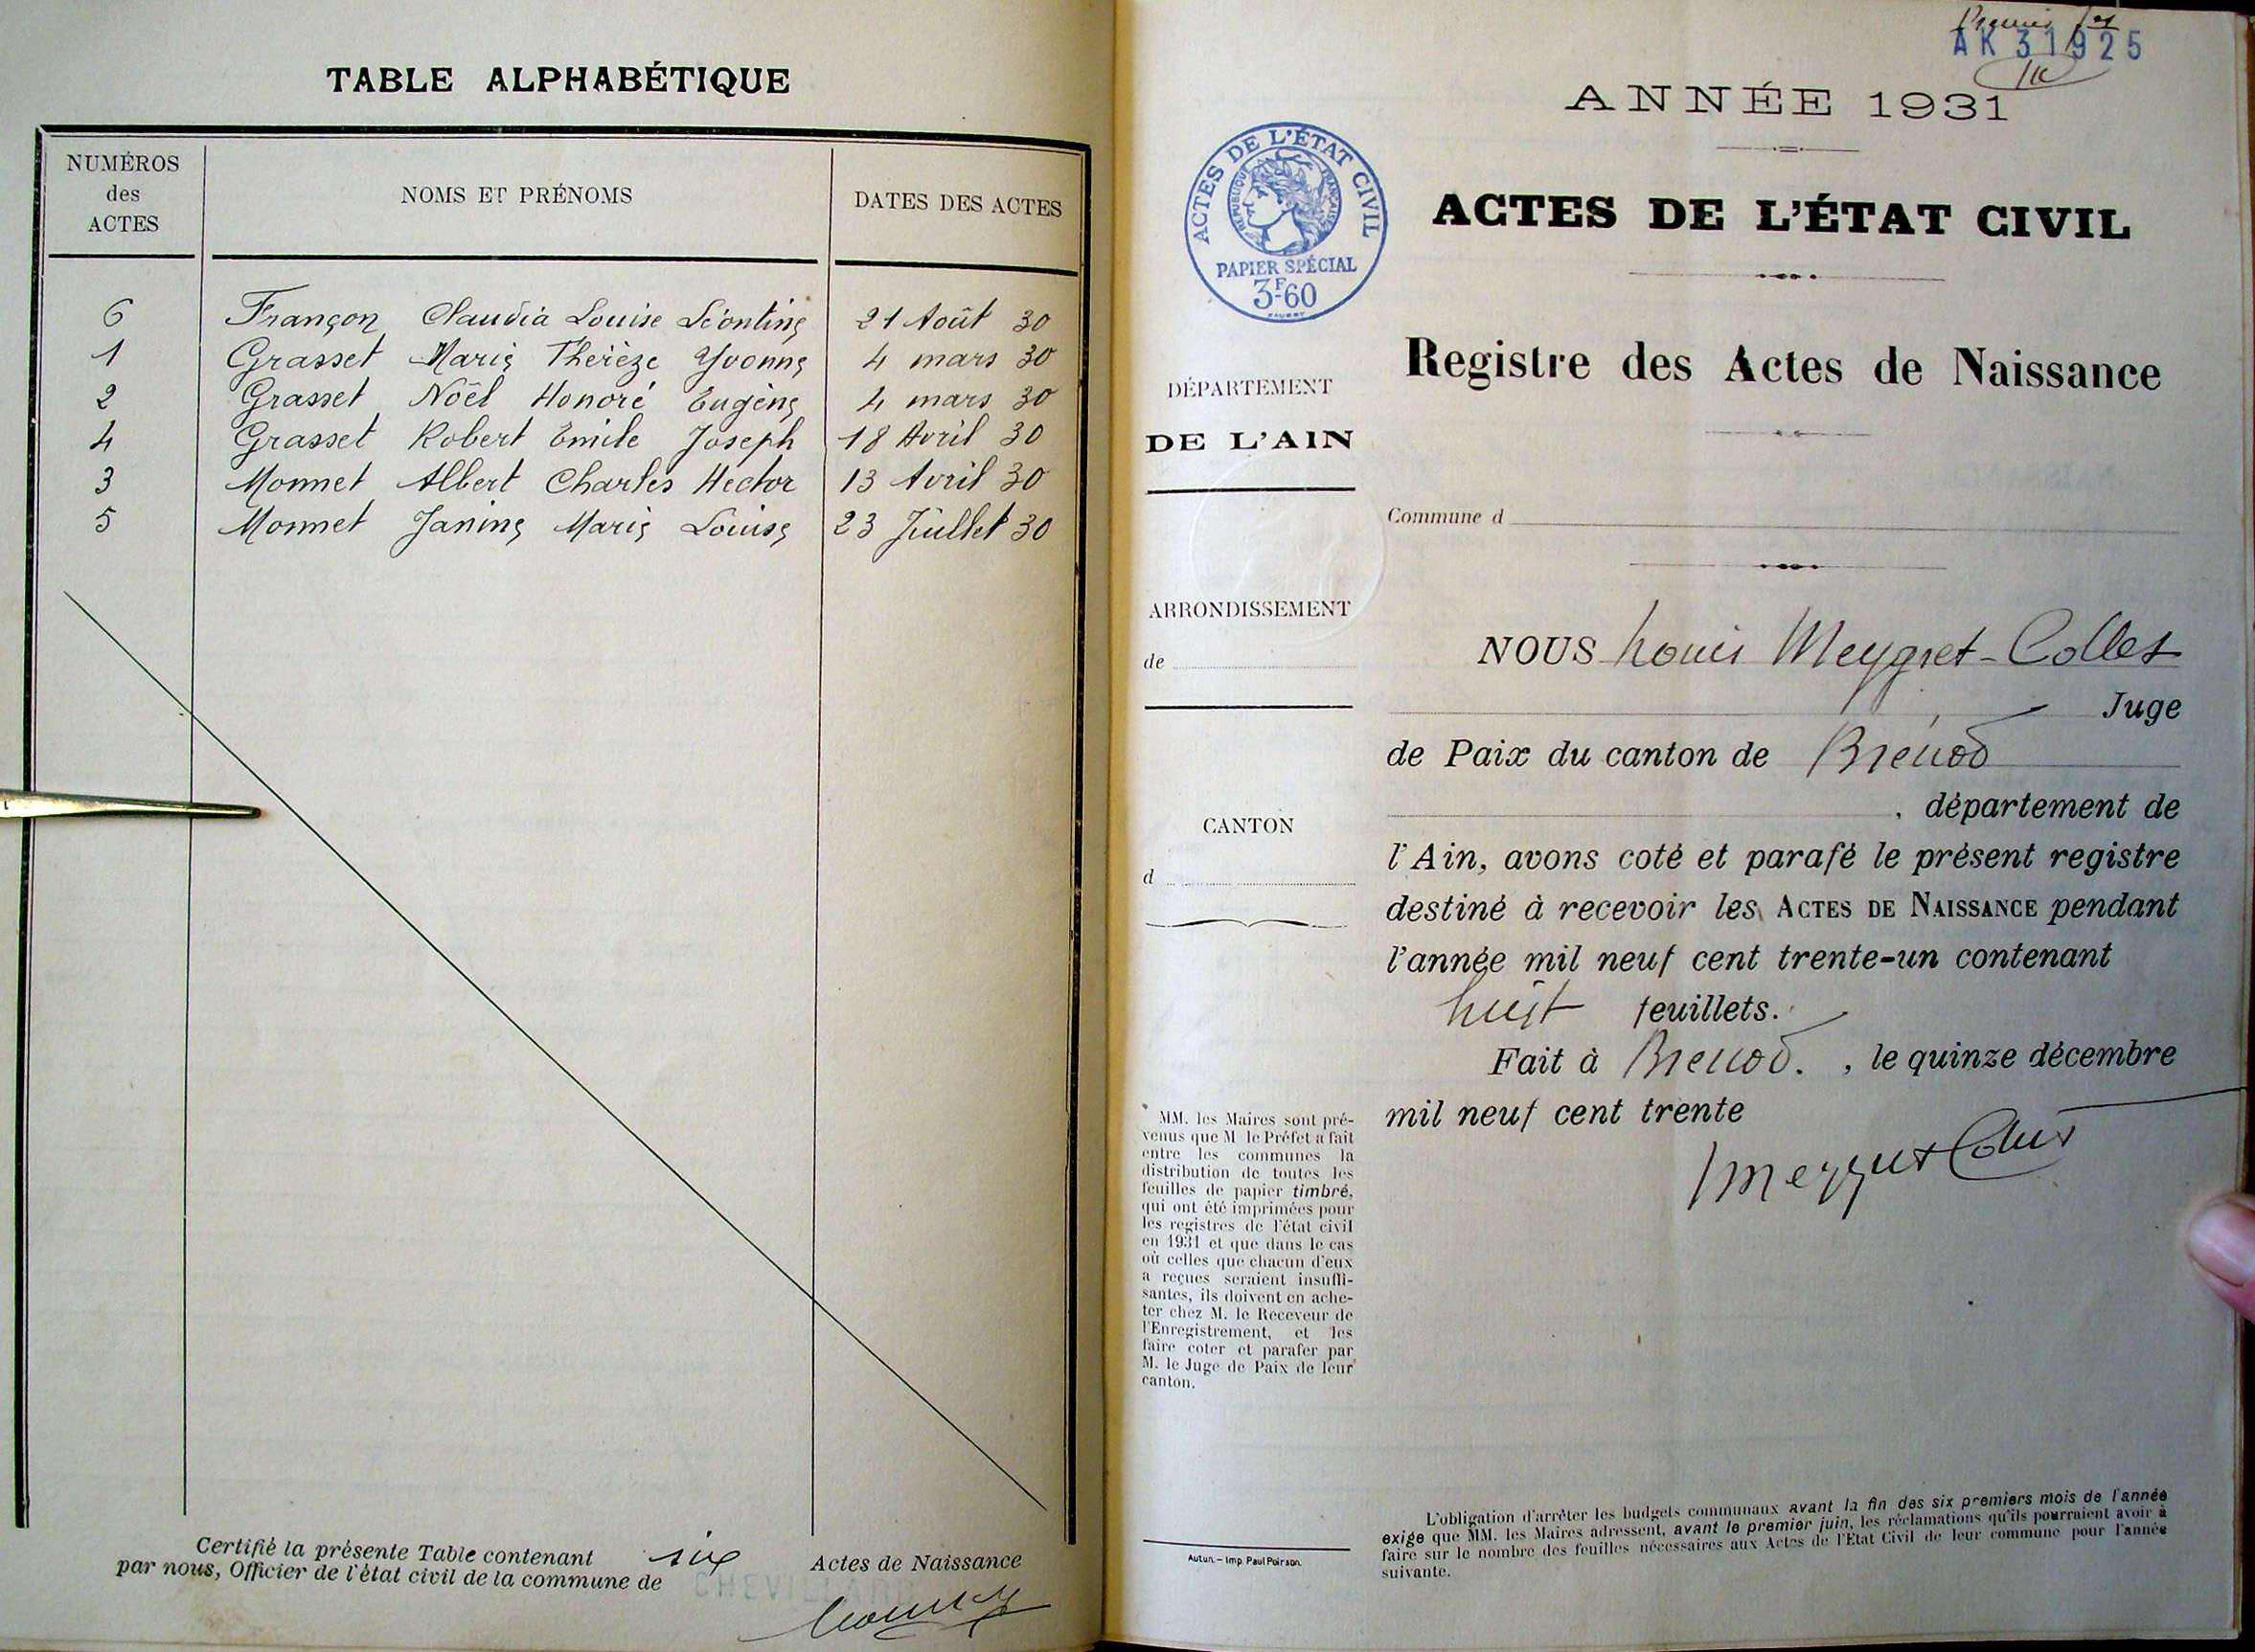 TABLE ALPHABÉTIQUE
NUMÉROS
des
ACTES
NOMS ET PRÉNOMS
DATES DES ACTES
6 Françon Claudia Louise Léontine 21 Août 30
1 Grasset Marie Thérèze Yvonne 4 mars 30
2 Grasset Noël Honoré Eugène 4 mars 30
4 Grasset Robert Emile Joseph 18 Avril 30
3 Monnet Albert Charles Hector 13 Avril 30
5 Monnet Janine Marie Louise 23 Juillet 30
Certifié la présente Table contenant six Actes de Naissance
par nous, Officier de l'état civil de la commune de
Premier
AK 31925
ANNÉE 1931
ACTES DE L'ÉTAT CIVIL
RÉPUBLIQUE FRANÇAISE
PAPIER SPÉCIAL
3F60
ACTES DE L'ÉTAT CIVIL
Registre des Actes de Naissance
DÉPARTEMENT
DE L'AIN
Commune d
ARRONDISSEMENT
de
CANTON
d
NOUS Louis Meygret-Collet
Juge
de Paix du canton de Brénod
, département de
l'Ain, avons coté et parafé le présent registre
destiné à recevoir les ACTES DE NAISSANCE pendant
l'année mil neuf cent trente-un contenant
huit feuillets.
Fait à Brenod. , le quinze décembre
mil neuf cent trente
Meygret Collet
MM. les Maires sont pré-
venus que M le Préfet a fait
entre les communes la
distribution de toutes les
feuilles de papier timbré,
qui ont été imprimées pour
les registres de l'état civil
en 1931 et que dans le cas
où celles que chacun d'eux
a reçues seraient insuffi-
santes, ils doivent en ache-
ter chez M. le Receveur de
l'Enregistrement, et les
faire coter et parafer par
M. le Juge de Paix de leur
canton.
Autun. - Imp. Paul Poirson.
L'obligation d'arrêter les budgets communaux avant la fin des six premiers mois de l'année
exige que MM. les Maires adressent, avant le premier juin, les réclamations qu'ils pourraient avoir à
faire sur le nombre des feuilles nécessaires aux Actes de l'État Civil de leur commune pour l'année
suivante.